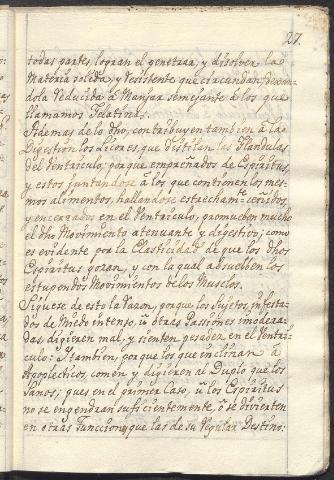 27.
todas partes, logran el penetrar, y disolver la
Materia solida, y resistente que circundan, dexan-
dola reducida à Manjar semejante à los que
llamamos Jelatinas.
Ademas de lo dho, contribuyen tambien à la
Digestion los licores, que destilan las Glandulas
del Ventriculo; porque empreñados de Espiritus,
y estos juntandose à los que contienen los mes-
mos alimentos, hallandose estrecham.te unidos,
y encerrados en el Ventriculo, promueben mucho
el dho Movimiento atenuante y digestivo; como
es evidente por la Elasticidad de que los dhos
Espiritus gozan, y con la qual absuelben los
estupendos Movimientos de los Muslos.
Siguese de esto la Razon, porque los Sujetos, infesta-
dos de Miedo intenso, ù otras Passiones modera-
das, digieren mal, y sienten pesadez en el Ventri-
culo: I tambien, porque los que inclinan à
Apoplecticos, comen y digieren al Duplo que los
Sanos; pues en el primer Caso, ù los Espiritus
no se engendran suficientemente, ò se divierten
en otras Funciones, que las de su Regular Destino: